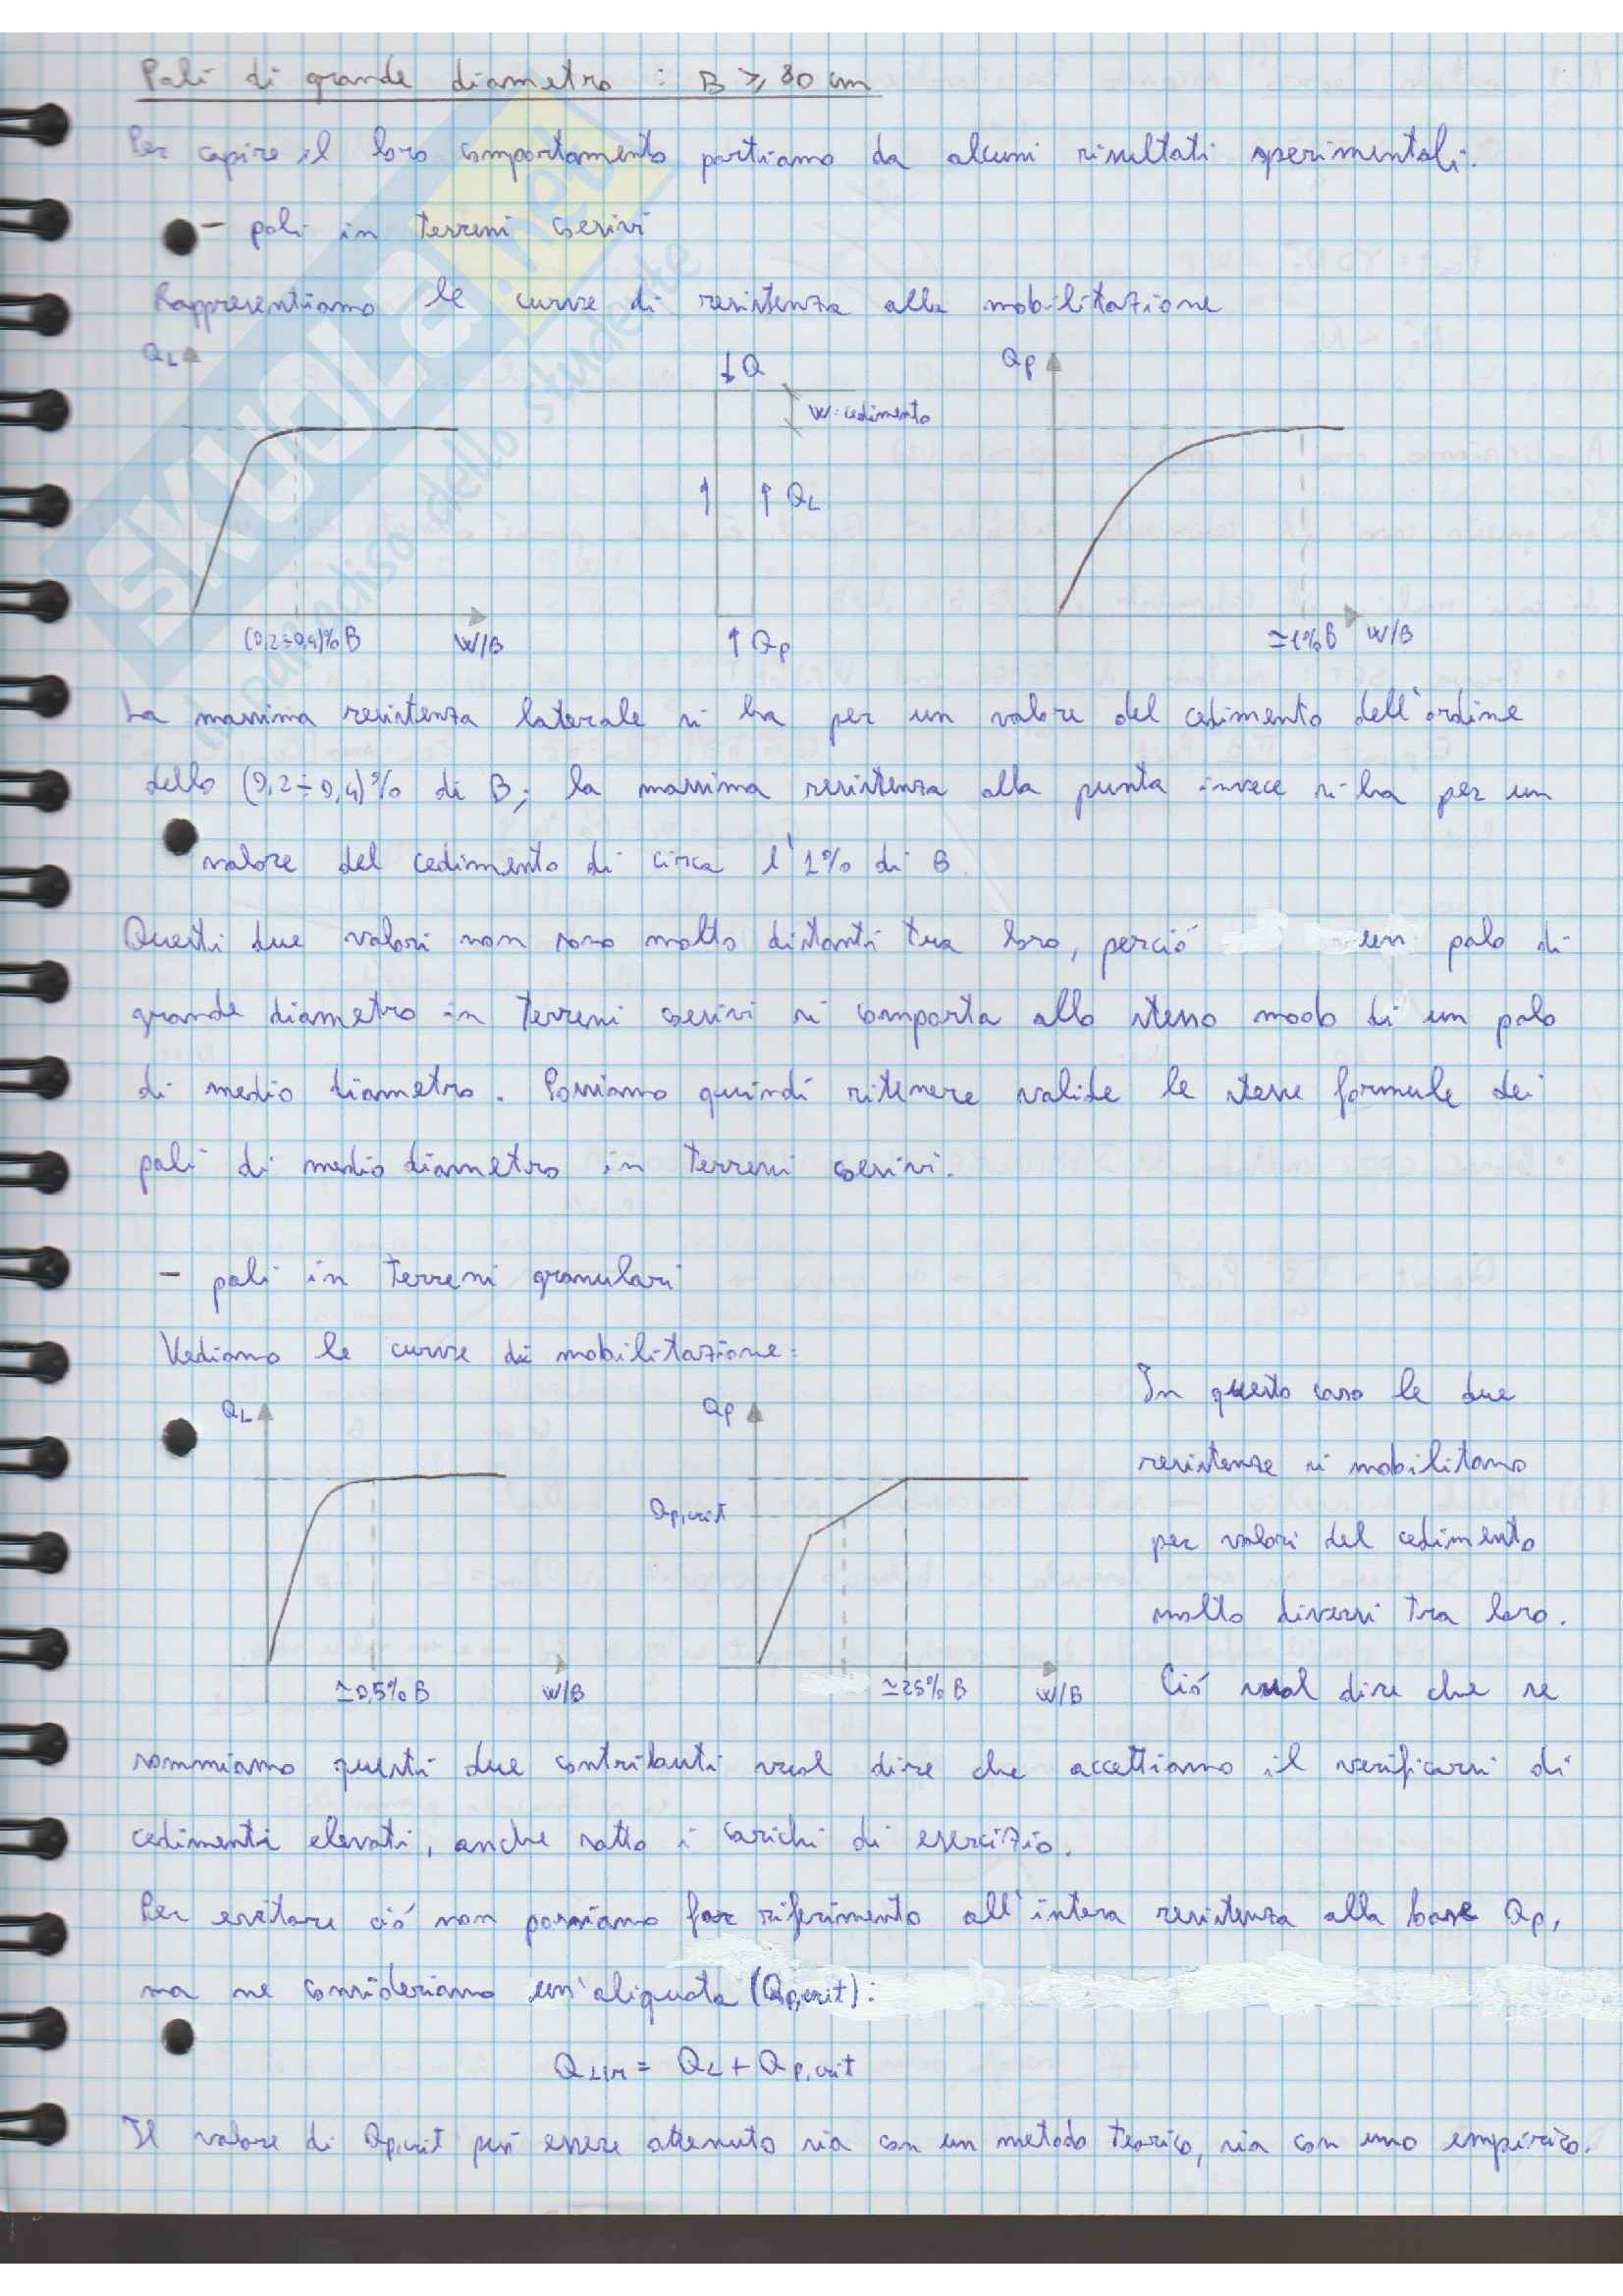 Pali di grande diametro : B ≥ 80 cm
Per capire il loro comportamento partiamo da alcuni risultati sperimentali.
- pali in terreni coesivi
Rappresentiamo le curve di resistenza alla mobilitazione
QL
Q
Qp
W: cedimento
QL
(0,2÷0,4)% B
W/B
Qp
≃1% B
W/B
La massima resistenza laterale si ha per un valore del cedimento dell'ordine
dello (0,2÷0,4)% di B; la massima resistenza alla punta invece si ha per un
valore del cedimento di circa l'1% di B.
Questi due valori non sono molto distanti tra loro, perció un palo di
grande diametro in terreni coesivi si comporta allo stesso modo di un palo
di medio diametro. Possiamo quindi ritenere valide le stesse formule dei
pali di medio diametro in terreni coesivi.
- pali in terreni granulari
Vediamo le curve di mobilitazione:
QL
Qp
Qp,crit
≃0,5% B
W/B
≃25% B
W/B
In questo caso le due
resistenze si mobilitano
per valori del cedimento
molto diversi tra loro.
Ció vuol dire che se
sommiamo questi due contributi vuol dire che accettiamo il verificarsi di
cedimenti elevati, anche sotto i carichi di esercizio.
Per evitare ció non possiamo far riferimento all'intera resistenza alla base Qp,
ma ne consideriamo un'aliquota (Qp,crit):
QLIM = QL + Qp,crit
Il valore di Qp,crit puó essere ottenuto sia con un metodo teorico, sia con uno empirico.
SKUOLA.net
il paradiso dello studente